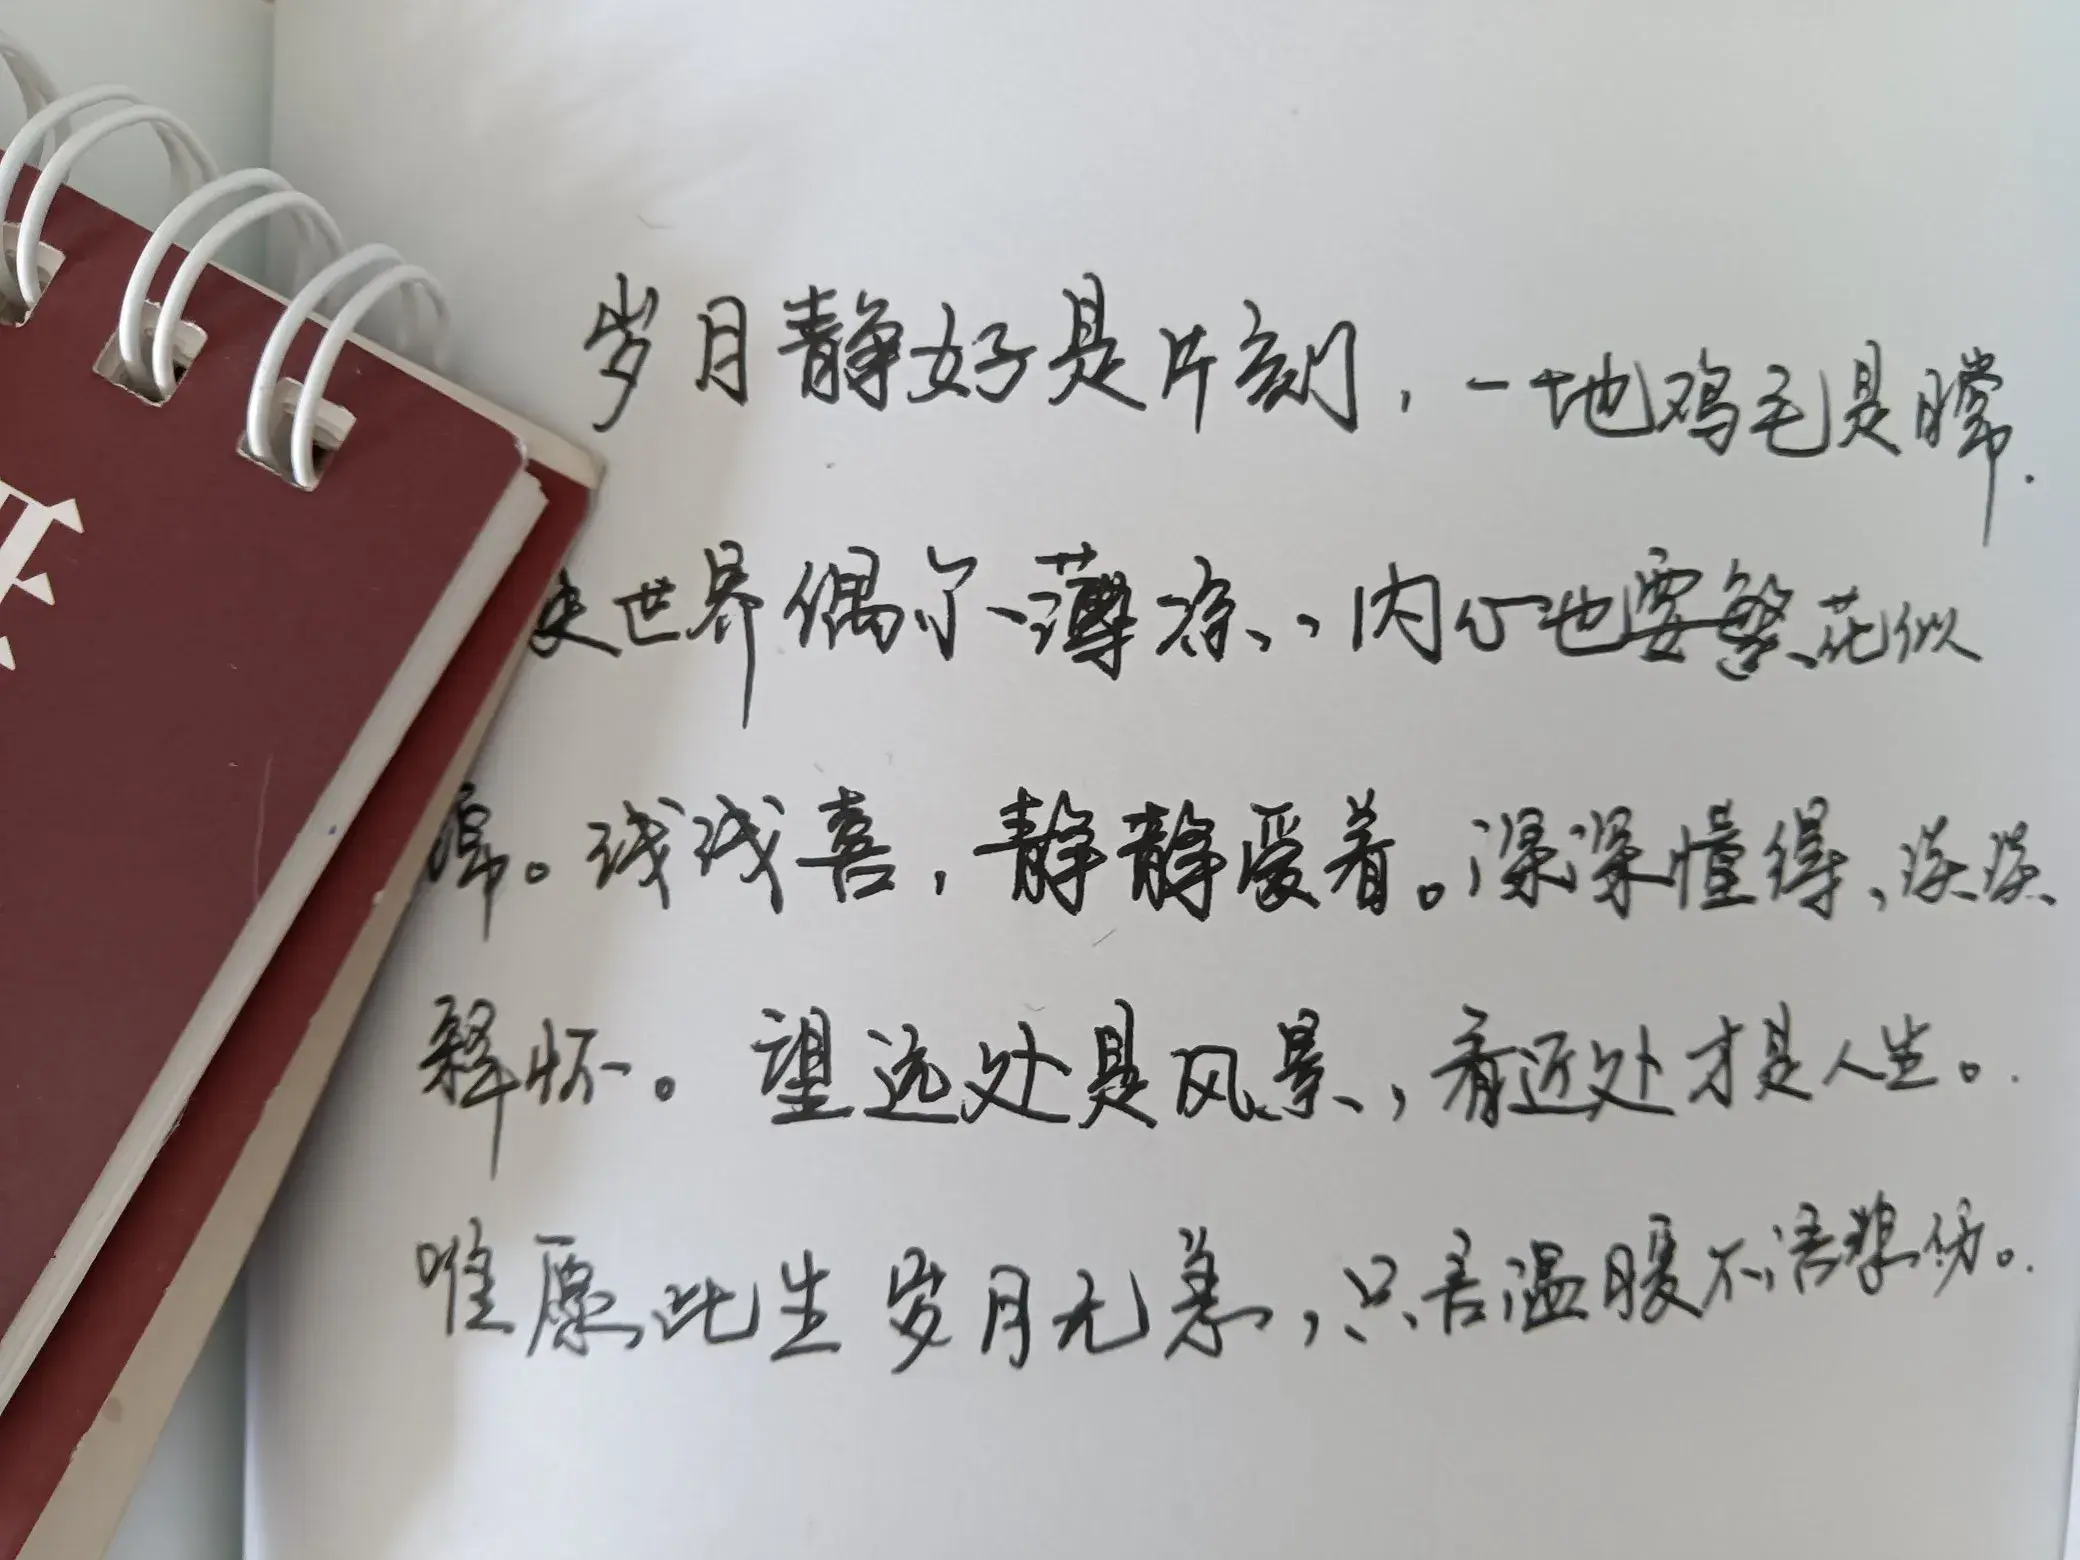 岁月静好是片刻，一地鸡毛是日常.
世界偶尔薄凉、内心也要繁花似
。浅浅喜，静静爱着。深深懂得，淡淡
释怀。望远处是风景，看近处才是人生。
唯愿此生岁月无恙，只言温暖不语悲伤。